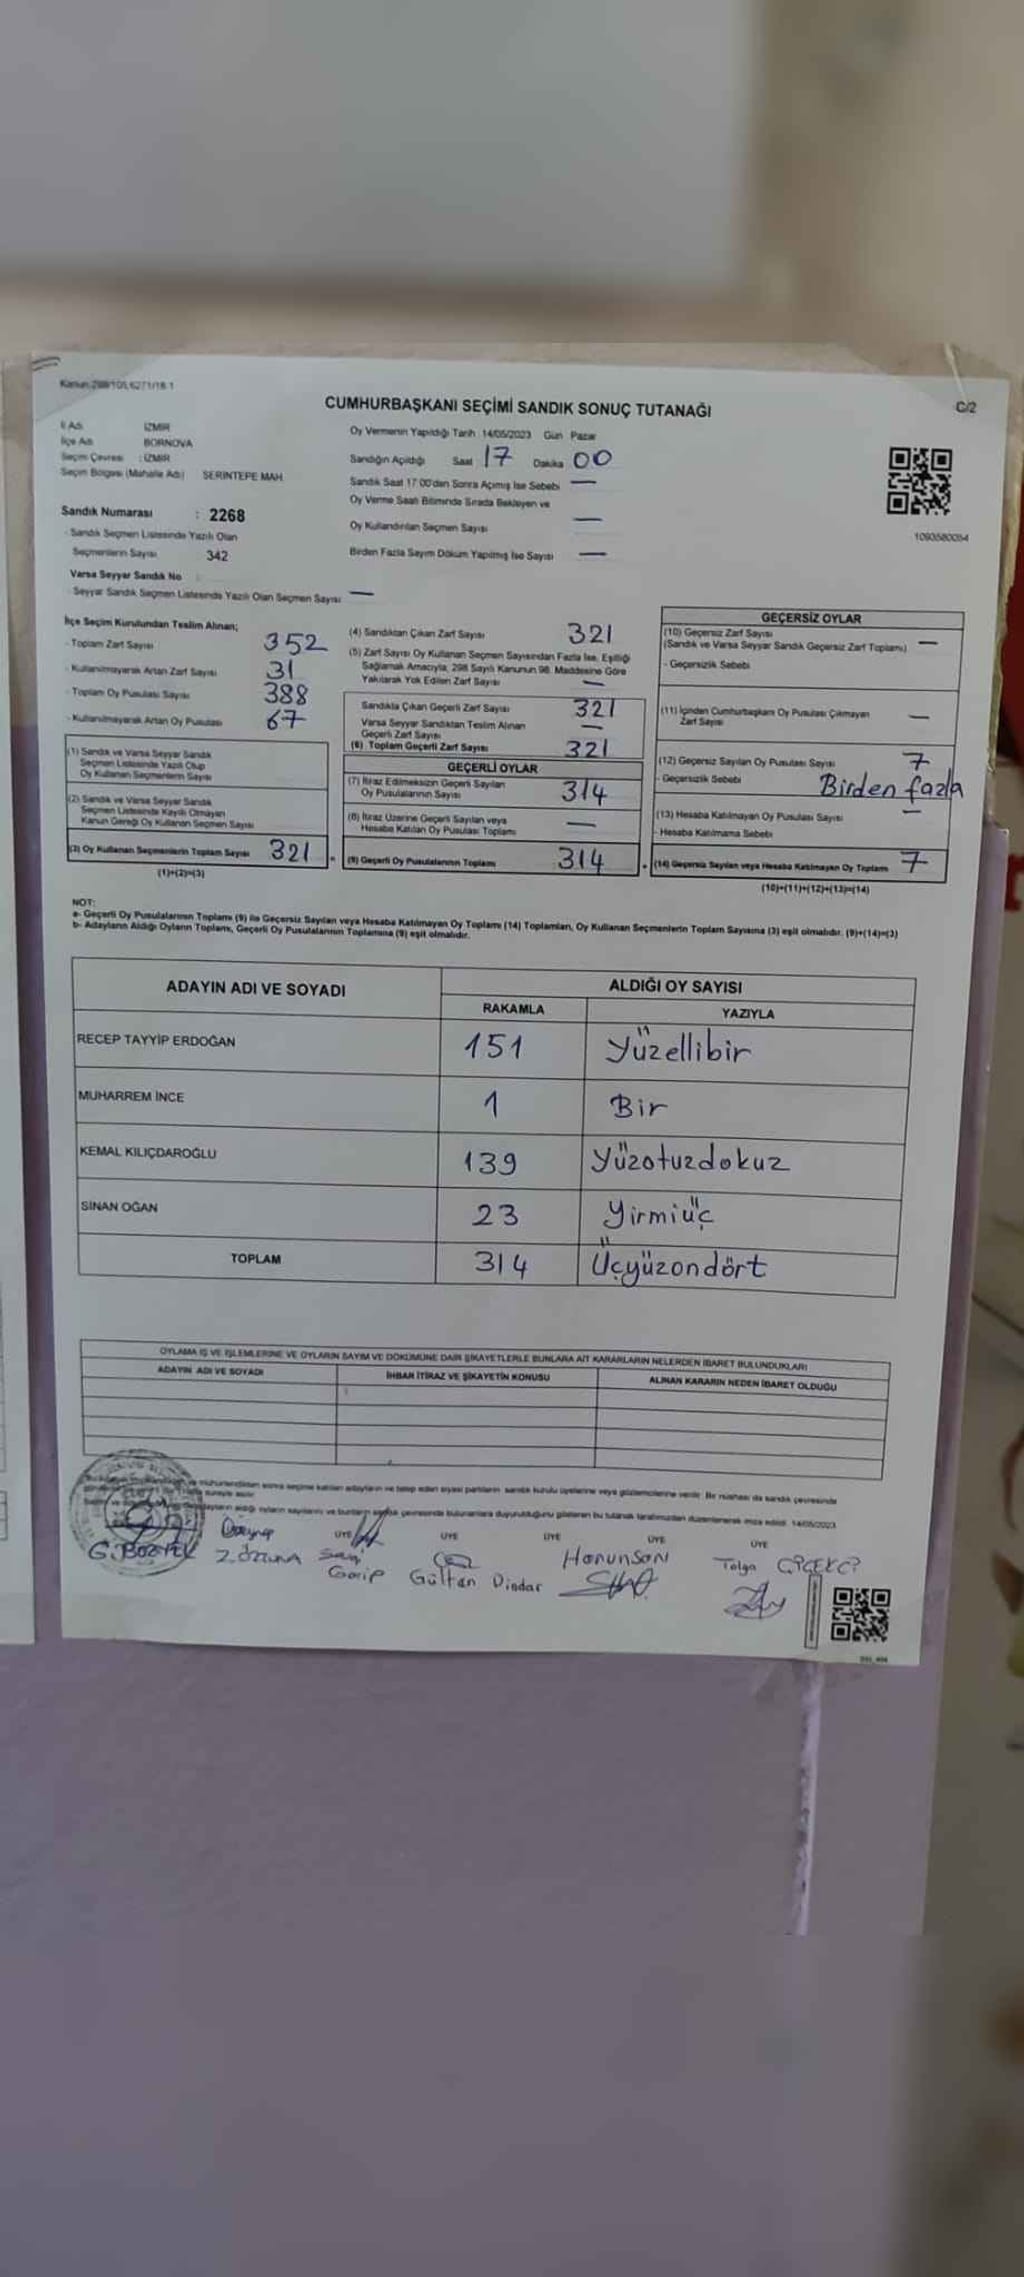 Kanun:298/105,6271/18.1
CUMHURBAŞKANI SEÇİMİ SANDIK SONUÇ TUTANAĞI
C/2
İl Adı İZMİR
İlçe Adı BORNOVA
Seçim Çevresi : İZMİR
Seçim Bölgesi (Mahalle Adı) SERİNTEPE MAH.
Sandık Numarası : 2268
- Sandık Seçmen Listesinde Yazılı Olan
Seçmenlerin Sayısı 342
Varsa Seyyar Sandık No :
- Seyyar Sandık Seçmen Listesinde Yazılı Olan Seçmen Sayısı —
Oy Vermenin Yapıldığı Tarih 14/05/2023 Gün Pazar
Sandığın Açıldığı Saat 17 Dakika 00
Sandık Saat 17:00'dan Sonra Açımış İse Sebebi —
Oy Verme Saati Bitiminde Sırada Bekleyen ve
Oy Kullandırılan Seçmen Sayısı —
Birden Fazla Sayım Döküm Yapılmış İse Sayısı —
1093580054
İlçe Seçim Kurulundan Teslim Alınan;
- Toplam Zarf Sayısı 352
- Kullanılmayarak Artan Zarf Sayısı 31
- Toplam Oy Pusulası Sayısı 388
- Kullanılmayarak Artan Oy Pusulası 67
(1) Sandık ve Varsa Seyyar Sandık
Seçmen Listesinde Yazılı Olup
Oy Kullanan Seçmenlerin Sayısı
(2) Sandık ve Varsa Seyyar Sandık
Seçmen Listesinde Kayıtlı Olmayan
Kanun Gereği Oy Kullanan Seçmen Sayısı
(3) Oy Kullanan Seçmenlerin Toplam Sayısı 321
(1)+(2)=(3)
(4) Sandıktan Çıkan Zarf Sayısı 321
(5) Zarf Sayısı Oy Kullanan Seçmen Sayısından Fazla İse, Eşitliği
Sağlamak Amacıyla, 298 Sayılı Kanunun 98. Maddesine Göre
Yakılarak Yok Edilen Zarf Sayısı —
Sandıkta Çıkan Geçerli Zarf Sayısı 321
Varsa Seyyar Sandıktan Teslim Alınan
Geçerli Zarf Sayısı —
(6) Toplam Geçerli Zarf Sayısı 321
GEÇERLİ OYLAR
(7) İtiraz Edilmeksizin Geçerli Sayılan
Oy Pusulalarının Sayısı 314
(8) İtiraz Üzerine Geçerli Sayılan veya
Hesaba Katılan Oy Pusulası Toplamı —
(9) Geçerli Oy Pusulalarının Toplamı 314
GEÇERSİZ OYLAR
(10) Geçersiz Zarf Sayısı —
(Sandık ve Varsa Seyyar Sandık Geçersiz Zarf Toplamı)
- Geçersizlik Sebebi
(11) İçinden Cumhurbaşkanı Oy Pusulası Çıkmayan
Zarf Sayısı —
(12) Geçersiz Sayılan Oy Pusulası Sayısı 7
- Geçersizlik Sebebi Birden fazla
(13) Hesaba Katılmayan Oy Pusulası Sayısı —
- Hesaba Katılmama Sebebi
(14) Geçersiz Sayılan veya Hesaba Katılmayan Oy Toplamı 7
(10)+(11)+(12)+(13)=(14)
NOT:
a- Geçerli Oy Pusulalarının Toplamı (9) ile Geçersiz Sayılan veya Hesaba Katılmayan Oy Toplamı (14) Toplamları, Oy Kullanan Seçmenlerin Toplam Sayısına (3) eşit olmalıdır. (9)+(14)=(3)
b- Adayların Aldığı Oyların Toplamı, Geçerli Oy Pusulalarının Toplamına (9) eşit olmalıdır.
ADAYIN ADI VE SOYADI ALDIĞI OY SAYISI
RAKAMLA YAZIYLA
RECEP TAYYİP ERDOĞAN 151 Yüzellibir
MUHARREM İNCE 1 Bir
KEMAL KILIÇDAROĞLU 139 Yüzotuzdokuz
SİNAN OĞAN 23 Yirmiüç
TOPLAM 314 Üçyüzondört
OYLAMA İŞ VE İŞLEMLERİNE VE OYLARIN SAYIM VE DÖKÜMÜNE DAİR ŞİKAYETLERLE BUNLARA AİT KARARLARIN NELERDEN İBARET BULUNDUKLARI
ADAYIN ADI VE SOYADI İHBAR İTİRAZ VE ŞİKAYETİN KONUSU ALINAN KARARIN NEDEN İBARET OLDUĞU
mühürlendikten sonra seçime katılan adayların ve talep eden siyasi partilerin sandık kurulu üyelerine veya gözlemcilerine verilir. Bir nüshası da sandık çevresinde
aldığı oyların sayılarını ve bunların sandık çevresinde bulunanlara duyurulduğunu gösteren bu tutanak tarafımızdan düzenlenerek imza edildi. 14/05/2023
ÜYE ÜYE ÜYE ÜYE ÜYE
G. BOZTEK Z. ÖZTUNA Garip Gültan Dindar Harunsoni Tolga ÇİÇEKÇİ